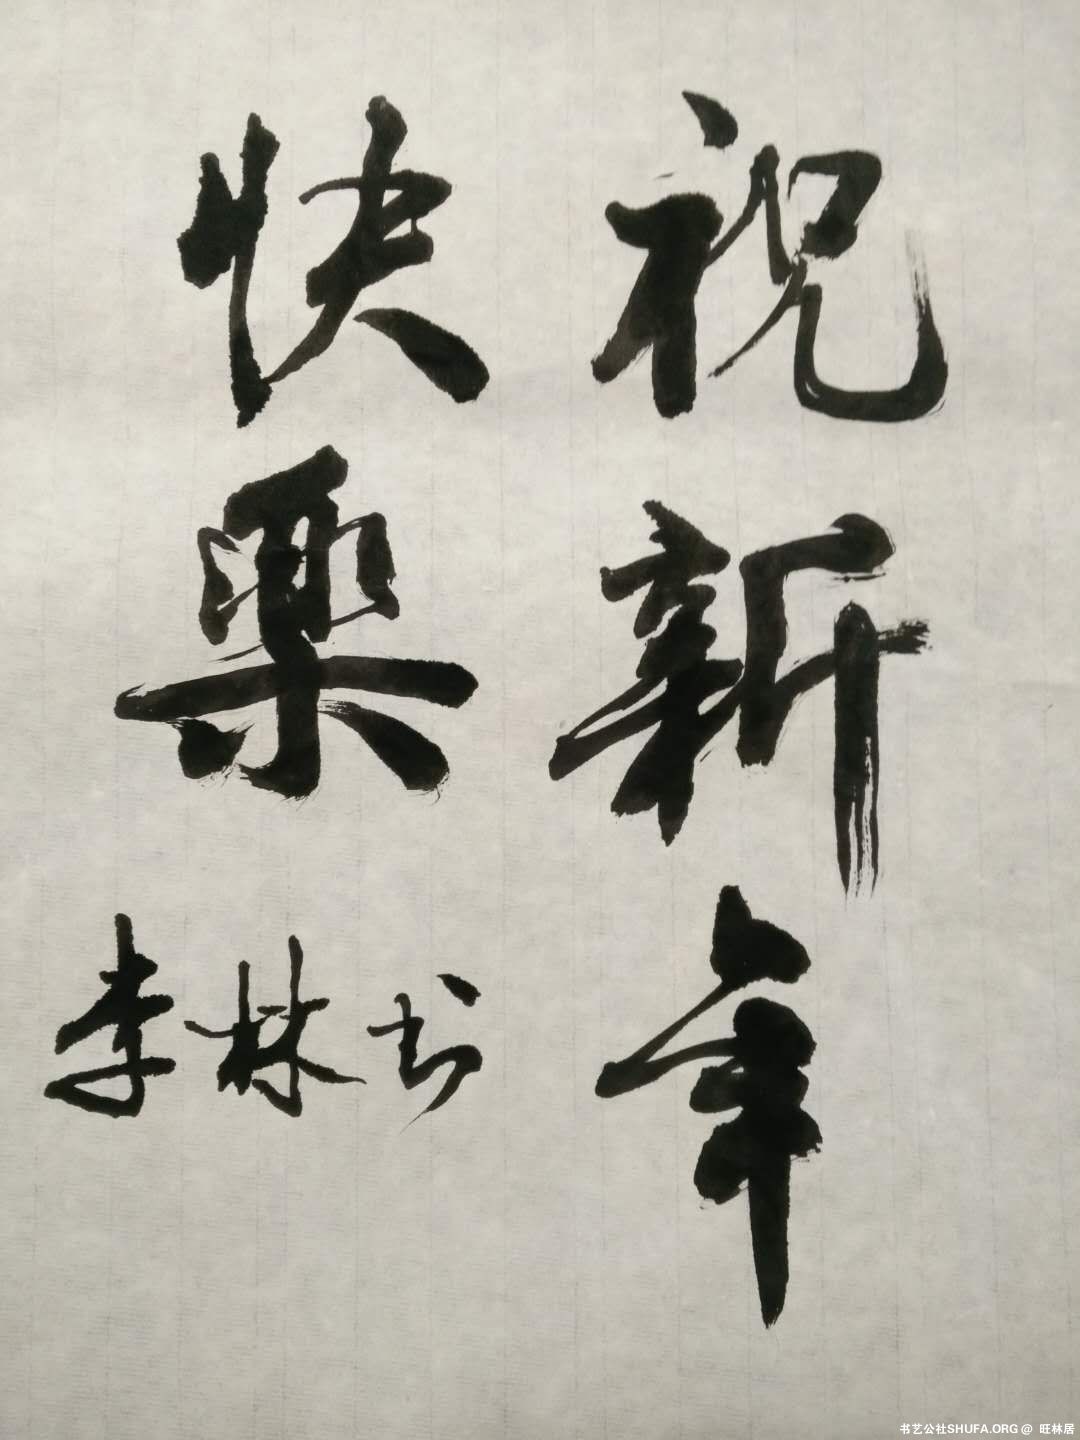 祝新年
快樂
李林书
书艺公社SHUFA.ORG @ 旺林居